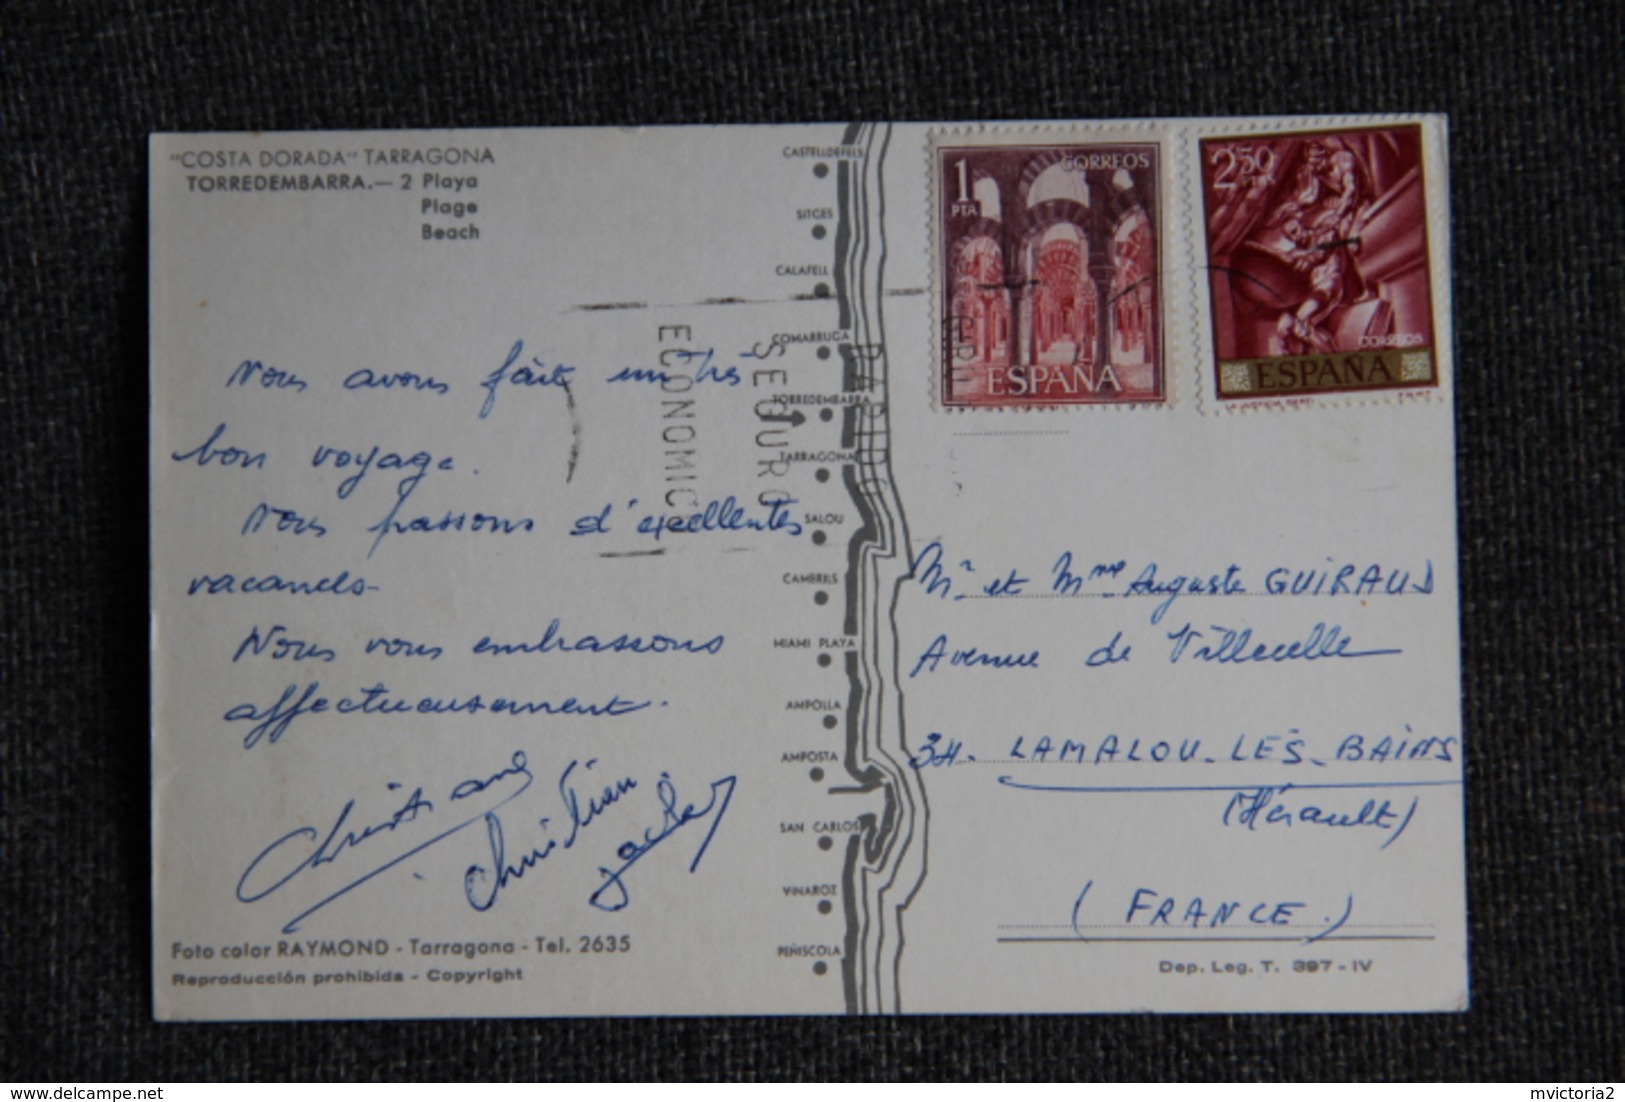 "COSTA DORADA" TARRAGONA
TORREDEMBARRA.— 2 Playa
Plage
Beach
Nous avons fait un très
bon voyage.
Nous passons d'excellentes
vacances.
Nous vous embrassons
affectueusement.
Christiane
Christian
Foto color RAYMOND - Tarragona - Tel. 2635
Reproducción prohibida - Copyright
CASTELLDEFELS
SITGES
CALAFELL
COMARRUGA
TORREDEMBARRA
TARRAGONA
SALOU
CAMBRILS
MIAMI PLAYA
AMPOLLA
AMPOSTA
SAN CARLOS
VINAROZ
PEÑISCOLA
SEGURO
ECONOMICO
1
PTA
CORREOS
ESPAÑA
2'50
PTA
CORREOS
ESPAÑA
Mr et Mme Auguste GUIRAUD
Avenue de Villecelle
34. LAMALOU-LES-BAINS
(Hérault)
(FRANCE.)
Dep. Leg. T. 397 - IV
mvictoria2